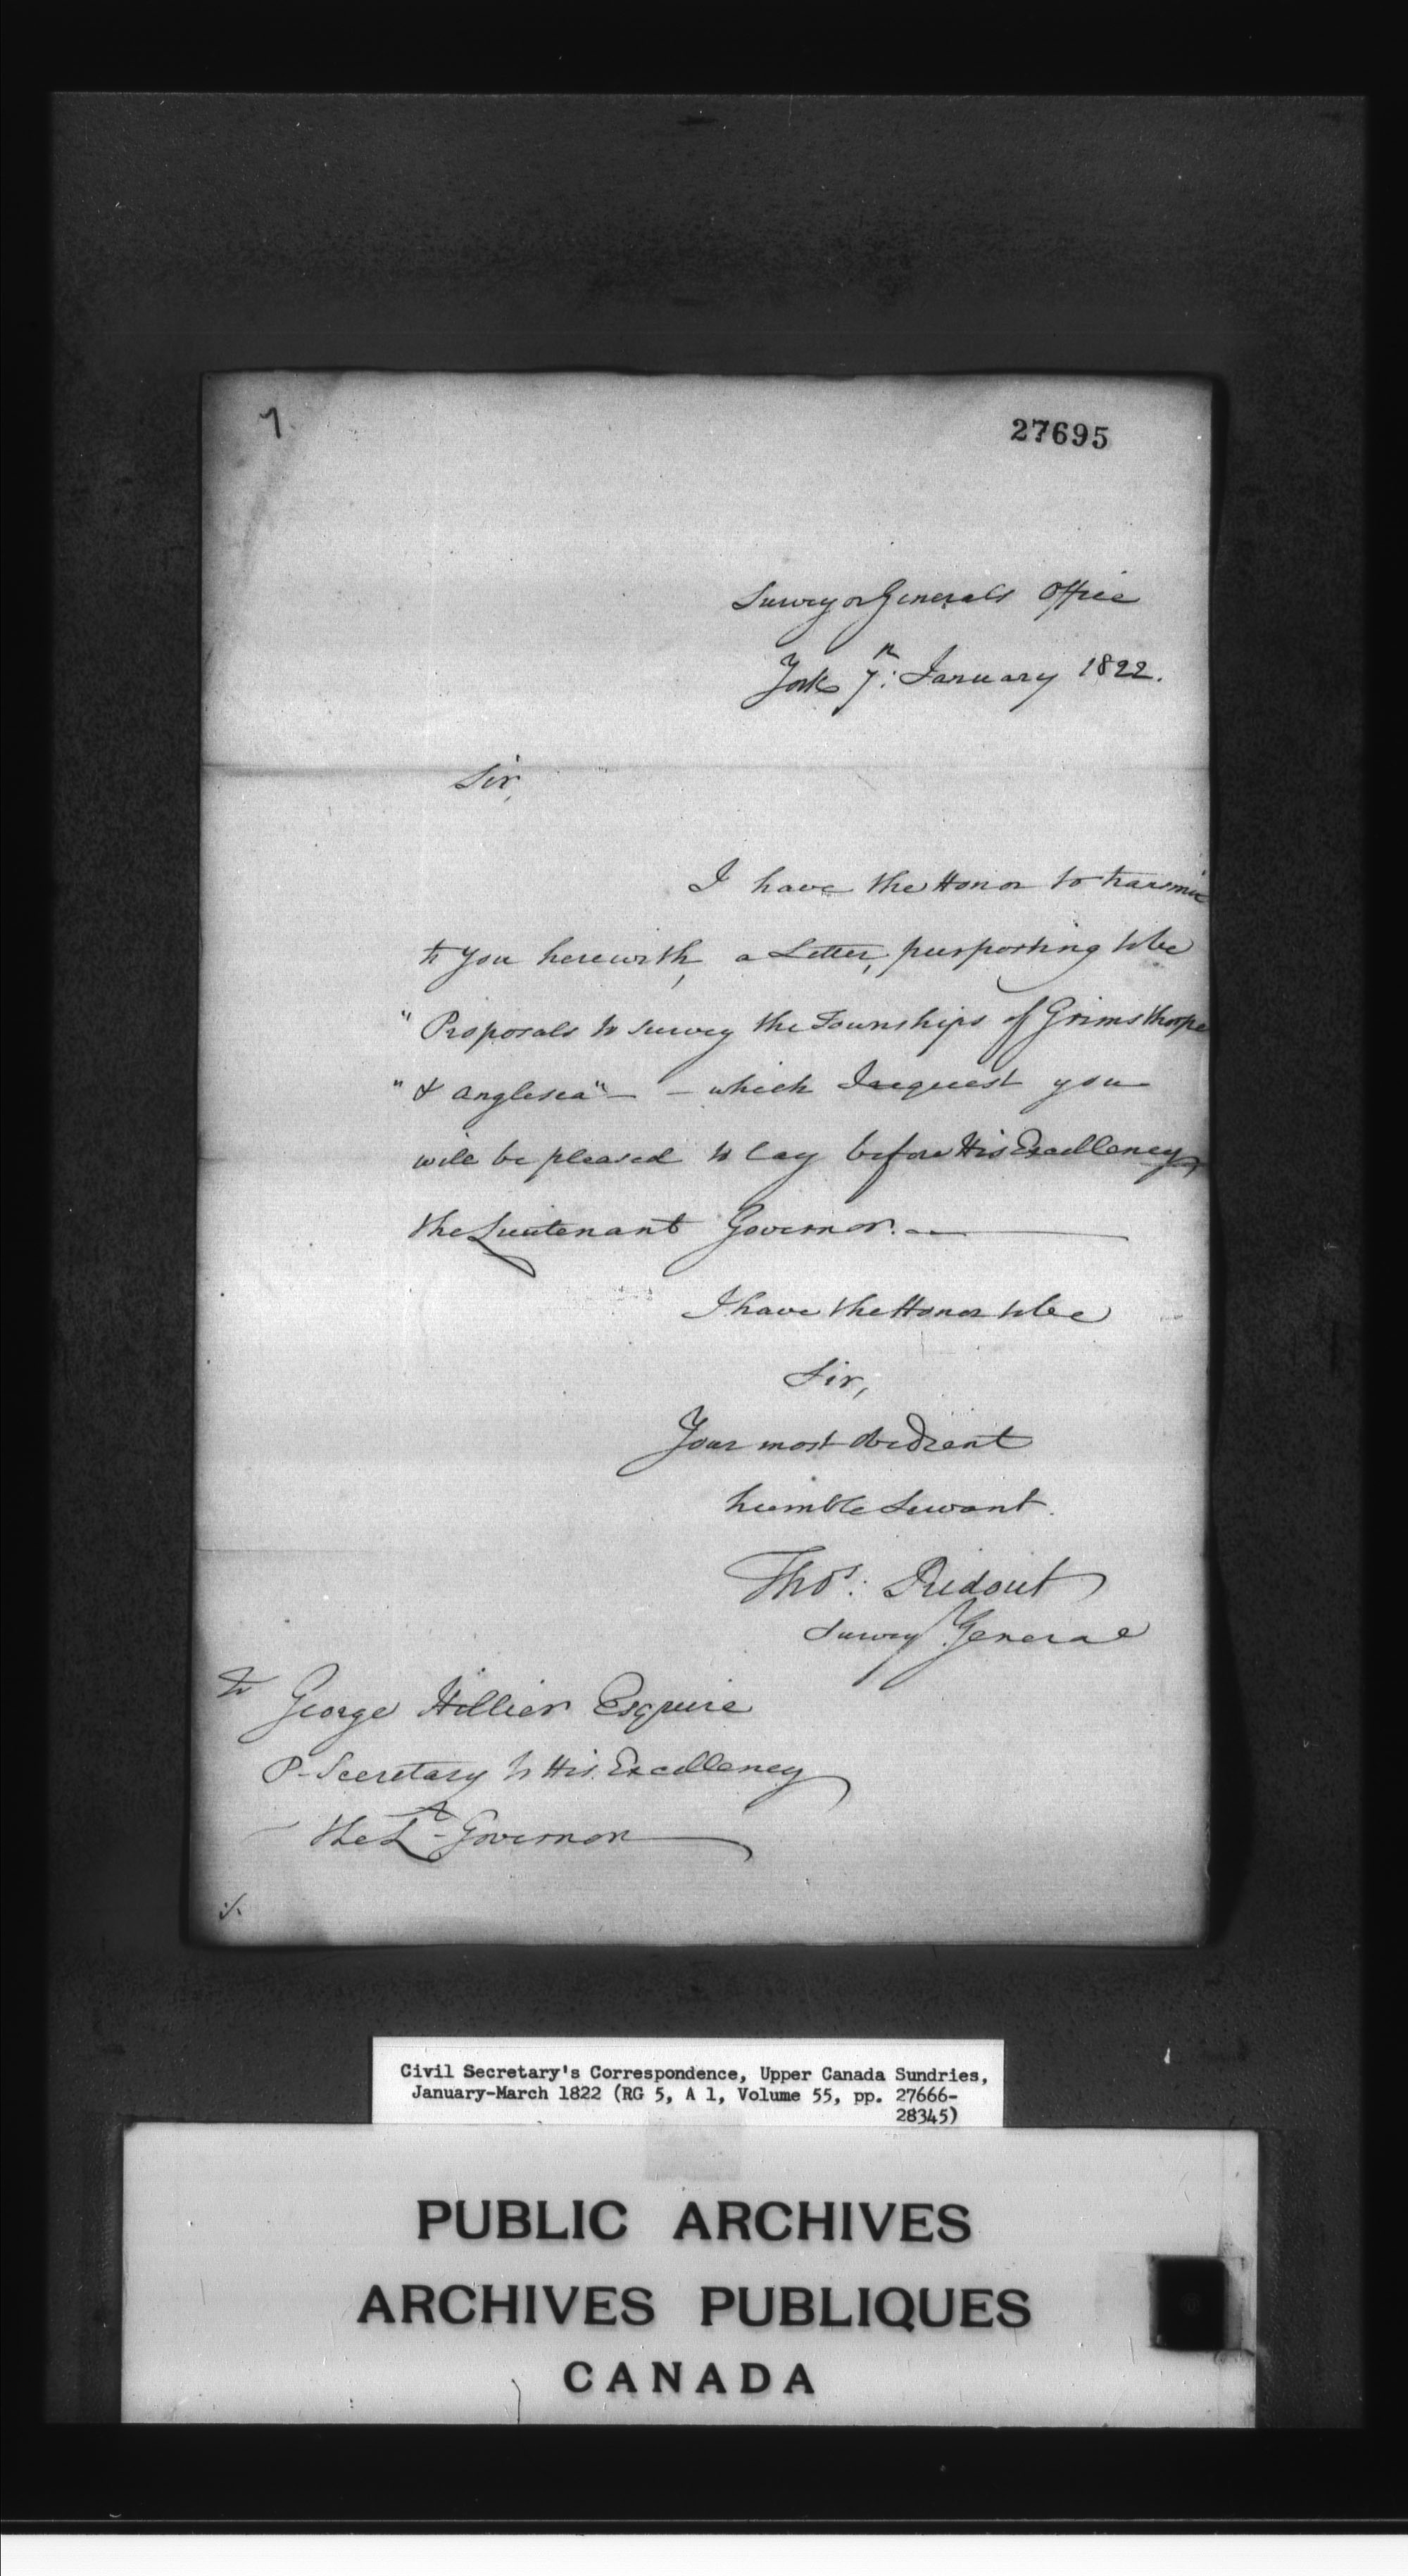 7
27695
Surveyor Generals Office
York 7th: January 1822.
Sir,
I have the Honor to transmit
to You herewith, a Letter, purporting to be
"Proposals to Survey the Townships of Grimsthorpe
"& Anglesea" — which I request you
will be pleased to lay before His Excellency
the Lieutenant Governor. —
I have the Honor to be
Sir,
Your most obedient
humble Servant.
Thos: Ridout
Survey General
To George Hillier Esquire
P. Secretary to His Excellency
the Lt Governor
Civil Secretary's Correspondence, Upper Canada Sundries,
January-March 1822 (RG 5, A 1, Volume 55, pp. 27666-
28345)
PUBLIC ARCHIVES
ARCHIVES PUBLIQUES
CANADA